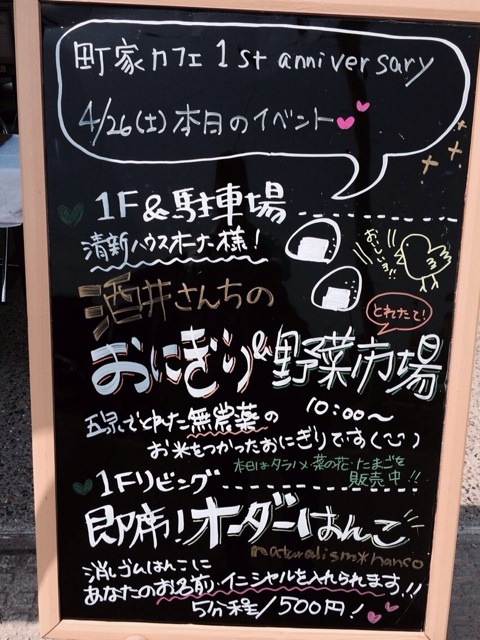 町家カフェ 1st anniversary
4/26(土)本日のイベント
1F&駐車場
清新ハウスオーナー様!
おいしいヨ!!
酒井さんちの
とれたて!
おにぎり&野菜市場
10:00〜
五泉でとれた無農薬の
お米もつかったおにぎりです
本日はタラノメ・菜の花・たまごを
販売中!!
1Fリビング
即席!オーダーはんこ
naturalism*hanco
消しゴムはんこに
あなたのお名前・イニシャルを入れられます!!
5分程/500円!